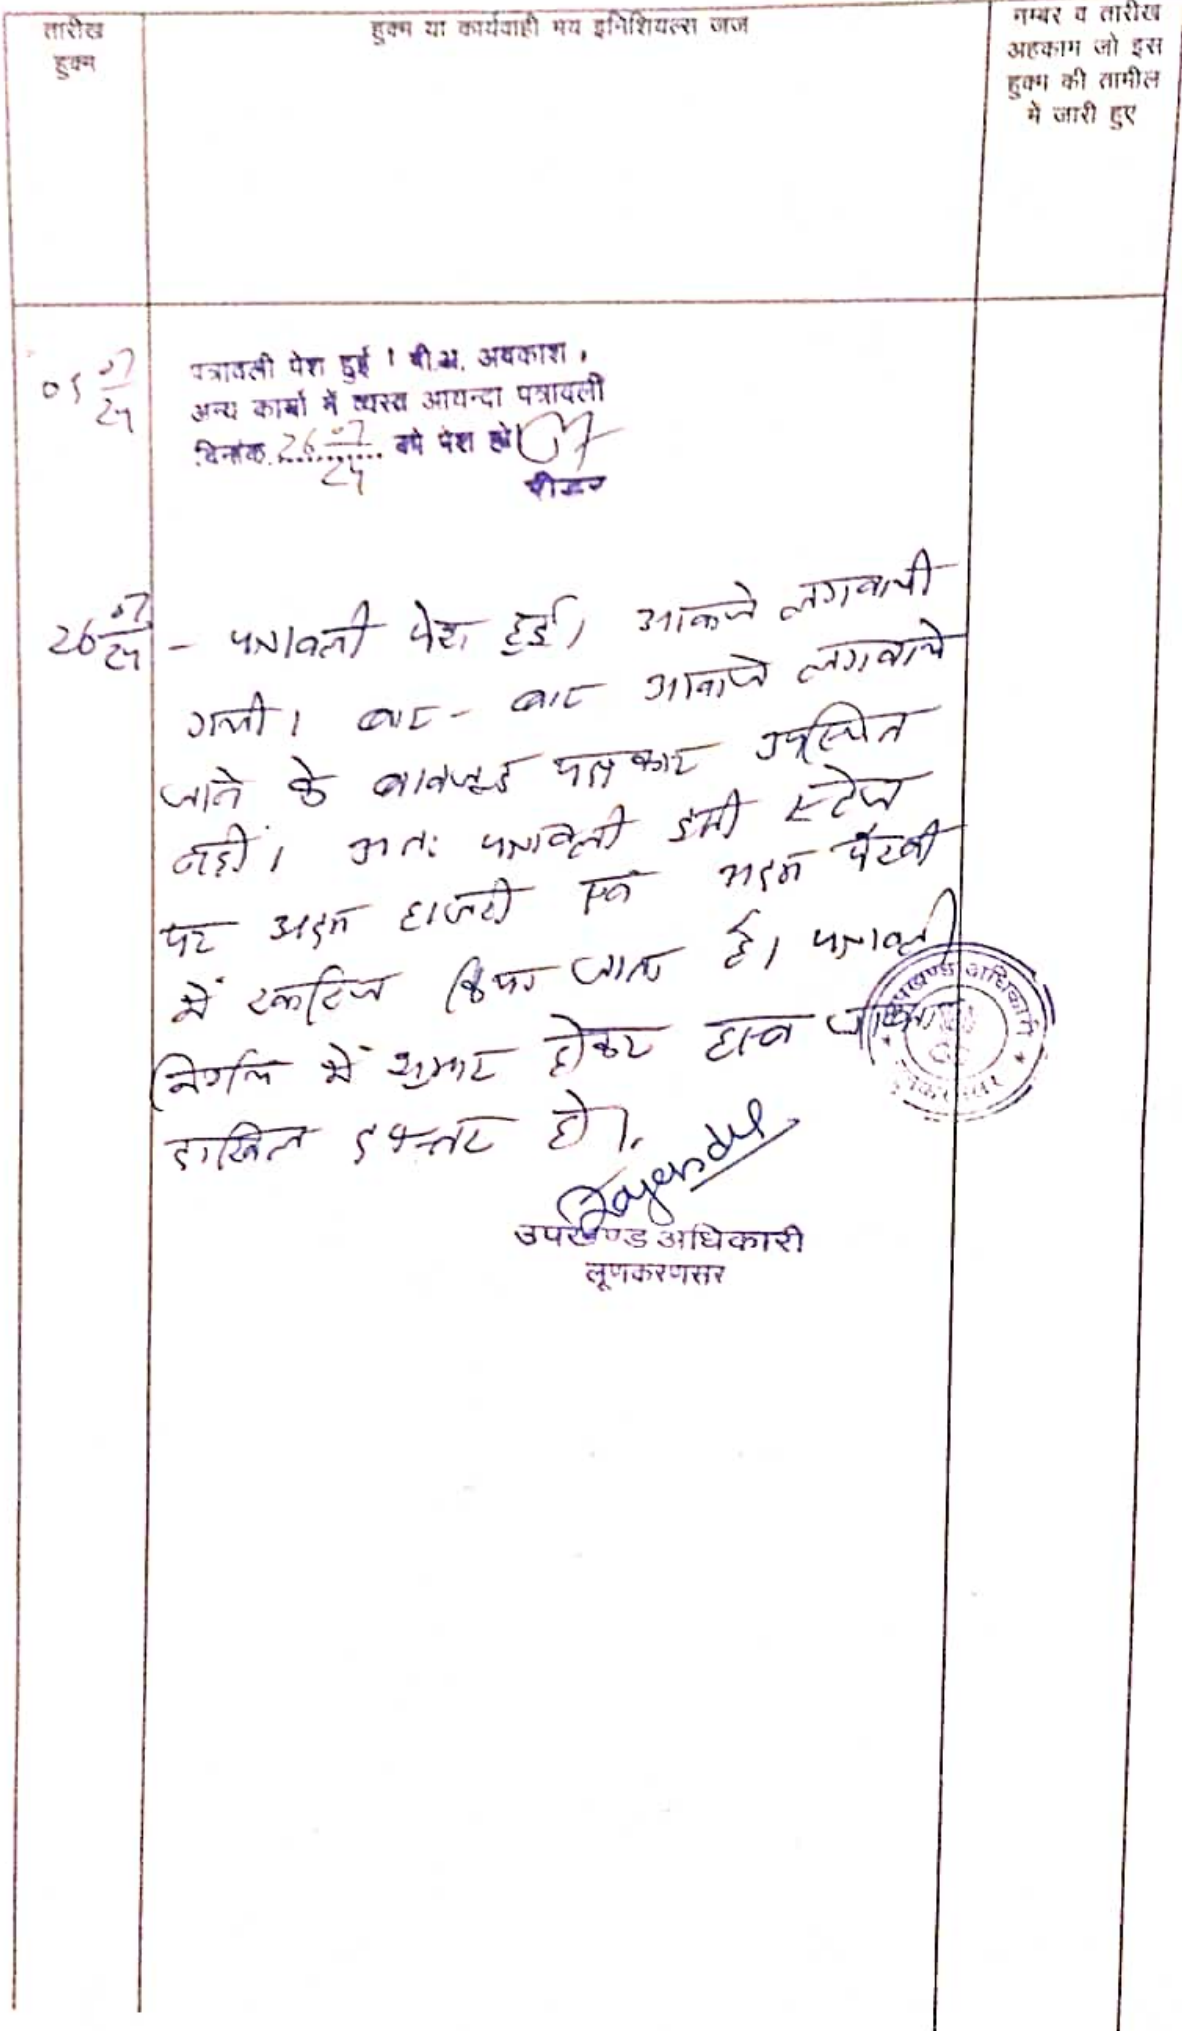 तारीख
हुक्म
हुक्म या कार्यवाही मय इनिशियल्स जज
नम्बर व तारीख
अहकाम जो इस
हुक्म की तामील
में जारी हुए
05 07/24
पत्रावली पेश हुई । पी.अ. अवकाश,
अन्य कार्यो में व्यस्त आयन्दा पत्रावली
दिनांक 26 07/24 वपे पेश हो।
रीडर
26 07/24 - पत्रावली पेश हुई। आवाजे लगवायी
गयी। बार - बार आवाजे लगवाये
जाने के बावजूद पक्षकार उपस्थित
नहीं। अतः पत्रावली इसी स्टेज
पर अदम हाजरी एवं अदम पैरवी
में खारिज किया जाता है। पत्रावली
निर्णित में शुमार होकर बाद
दाखिल दफ्तर हो।
उपखण्ड अधिकारी
लूणकरणसर
Rajendra
उपखण्ड अधिकारी
लूणकरणसर